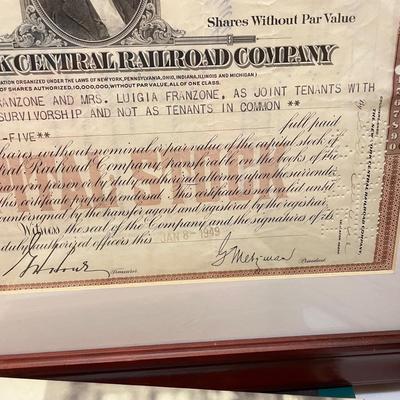 Shares Without Par Value
K CENTRAL RAILROAD COMPANY
ATION ORGANIZED UNDER THE LAWS OF NEW YORK, PENNSYLVANIA, OHIO, INDIANA, ILLINOIS AND MICHIGAN)
OF SHARES AUTHORIZED, 10,000,000, WITHOUT PAR VALUE, ALL OF ONE CLASS.
RANZONE AND MRS. LUIGIA FRANZONE, AS JOINT TENANTS WITH
SURVIVORSHIP AND NOT AS TENANTS IN COMMON **
-FIVE** full paid
shares without nominal or par value of the capital stock of
Railroad Company transferable on the books of the
in person or by duly authorized attorney upon the surrender
this certificate properly endorsed. This certificate is not valid until
countersigned by the transfer agent and registered by the registrar.
Witness the seal of the Company and the signatures of its
duly authorized officers this JAN 8-1949
Treasurer
G Metzman President